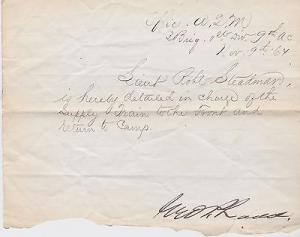 Ofic. A.Q.M
3 Brig. 1st Div 9th AC
Nov. 9th 64
Lieut Robt Steadman,
is hereby detailed in charge of the
Supply Train to the Front and
return to Camp.